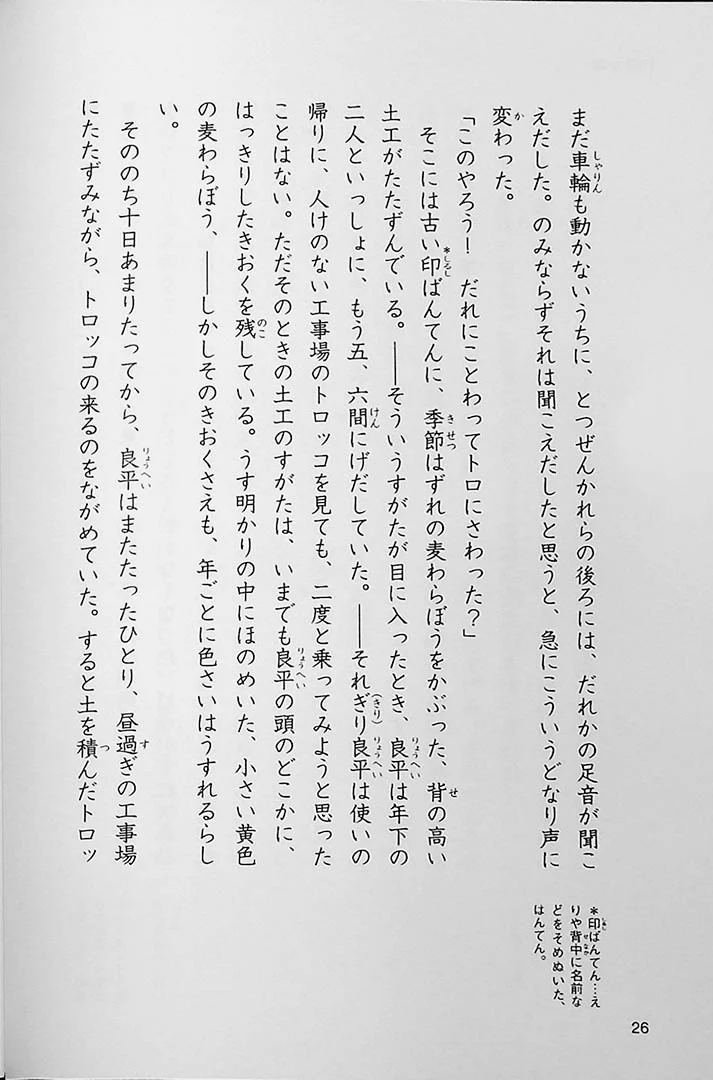 まだ車輪も動かないうちに、とつぜんかれらの後ろには、だれかの足音が聞こ
えだした。のみならずそれは聞こえだしたと思うと、急にこういうどなり声に
変わった。
「このやろう！　だれにことわってトロにさわった？」
　そこには古い*印ばんてんに、季節はずれの麦わらぼうをかぶった、背の高い
土工がたたずんでいる。――そういうすがたが目に入ったとき、良平は年下の
二人といっしょに、もう五、六間にげだしていた。――それぎり(きり)良平は使いの
帰りに、人けのない工事場のトロッコを見ても、二度と乗ってみようと思った
ことはない。ただそのときの土工のすがたは、いまでも良平の頭のどこかに、
はっきりしたきおくを残している。うす明かりの中にほのめいた、小さい黄色
の麦わらぼう、――しかしそのきおくさえも、年ごとに色さいはうすれるらし
い。
　そののち十日あまりたってから、良平はまたたったひとり、昼過ぎの工事場
にたたずみながら、トロッコの来るのをながめていた。すると土を積んだトロッ
*印ばんてん…え
りや背中に名前な
どをそめぬいた、
はんてん。
26